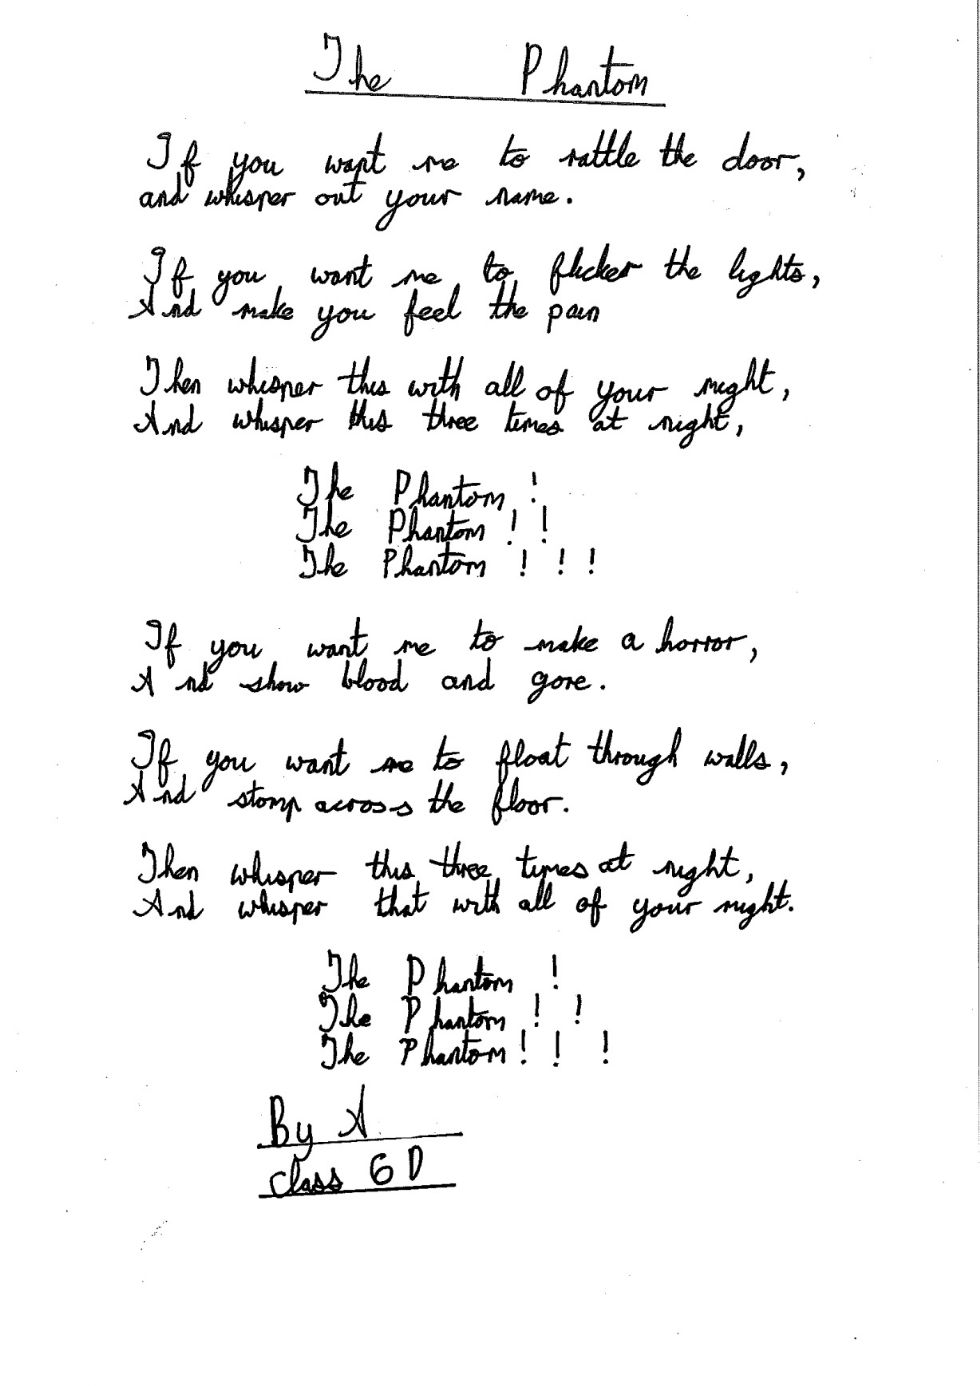 The Phantom
If you want me to rattle the door,
and whisper out your name.
If you want me to flicker the lights,
And make you feel the pain
Then whisper this with all of your might,
And whisper this three times at night,
The Phantom !
The Phantom ! !
The Phantom ! ! !
If you want me to make a horror,
And show blood and gore.
If you want me to float through walls,
And stomp across the floor.
Then whisper this three times at night,
And whisper that with all of your might.
The Phantom !
The Phantom ! !
The Phantom ! ! !
By A
class 6D